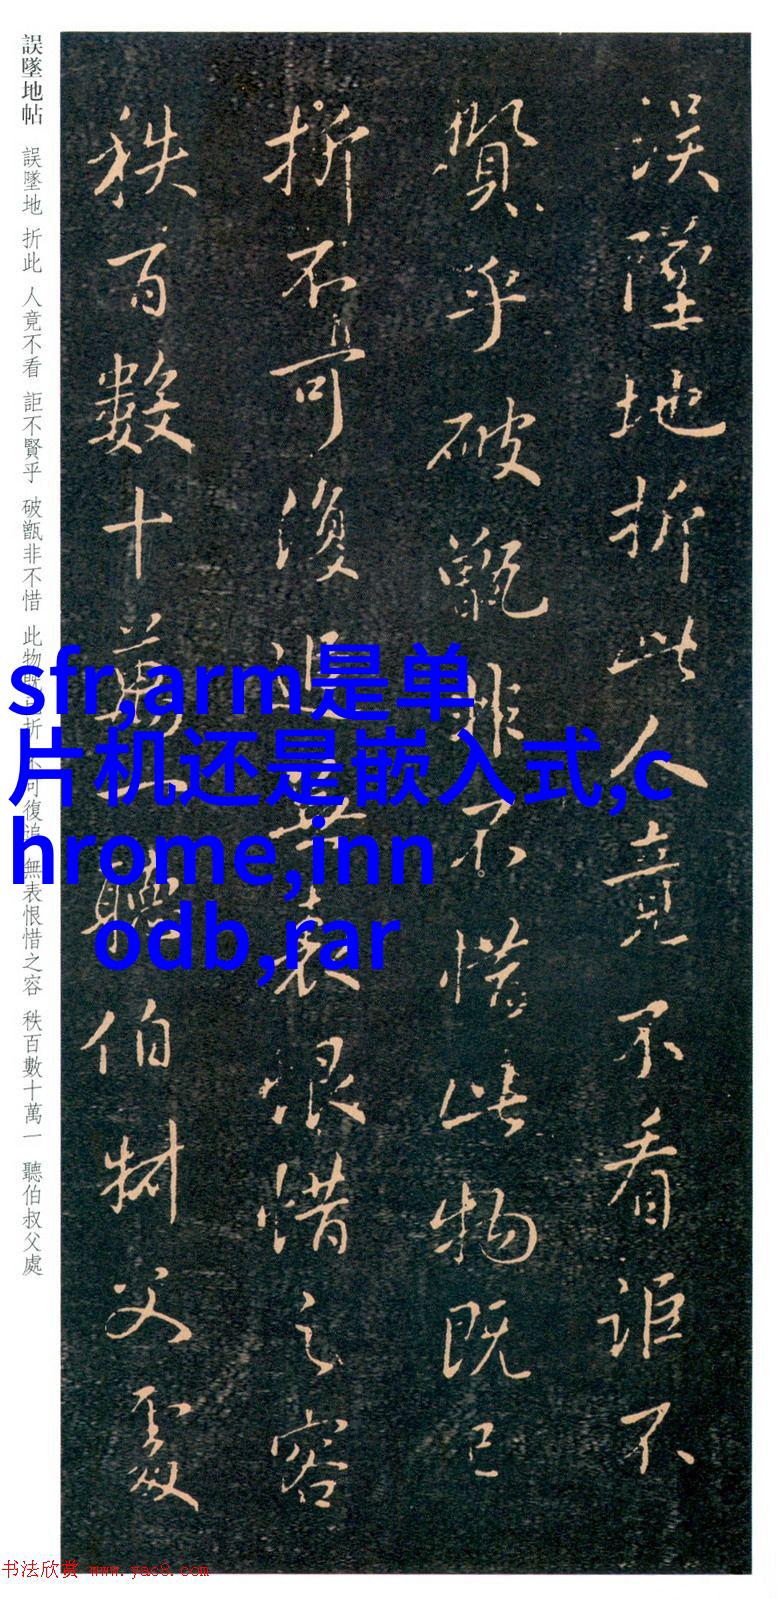 誤墜地帖 誤墜地 折此 人竟不看 詎不賢乎 破甑非不惜 此物既 折 不可復追 無表恨惜之容 秩百數十萬一 聽伯叔父處
误墬地折此人竟不看詎不
賢乎破甑非不惜此物既已
折不可復追無表恨惜之容
秩百數十萬一聽伯叔父處
sfr,arm是单
片机还是嵌入式,c
hrome,inn
odb,rar
书法欣赏 www.yac8.com